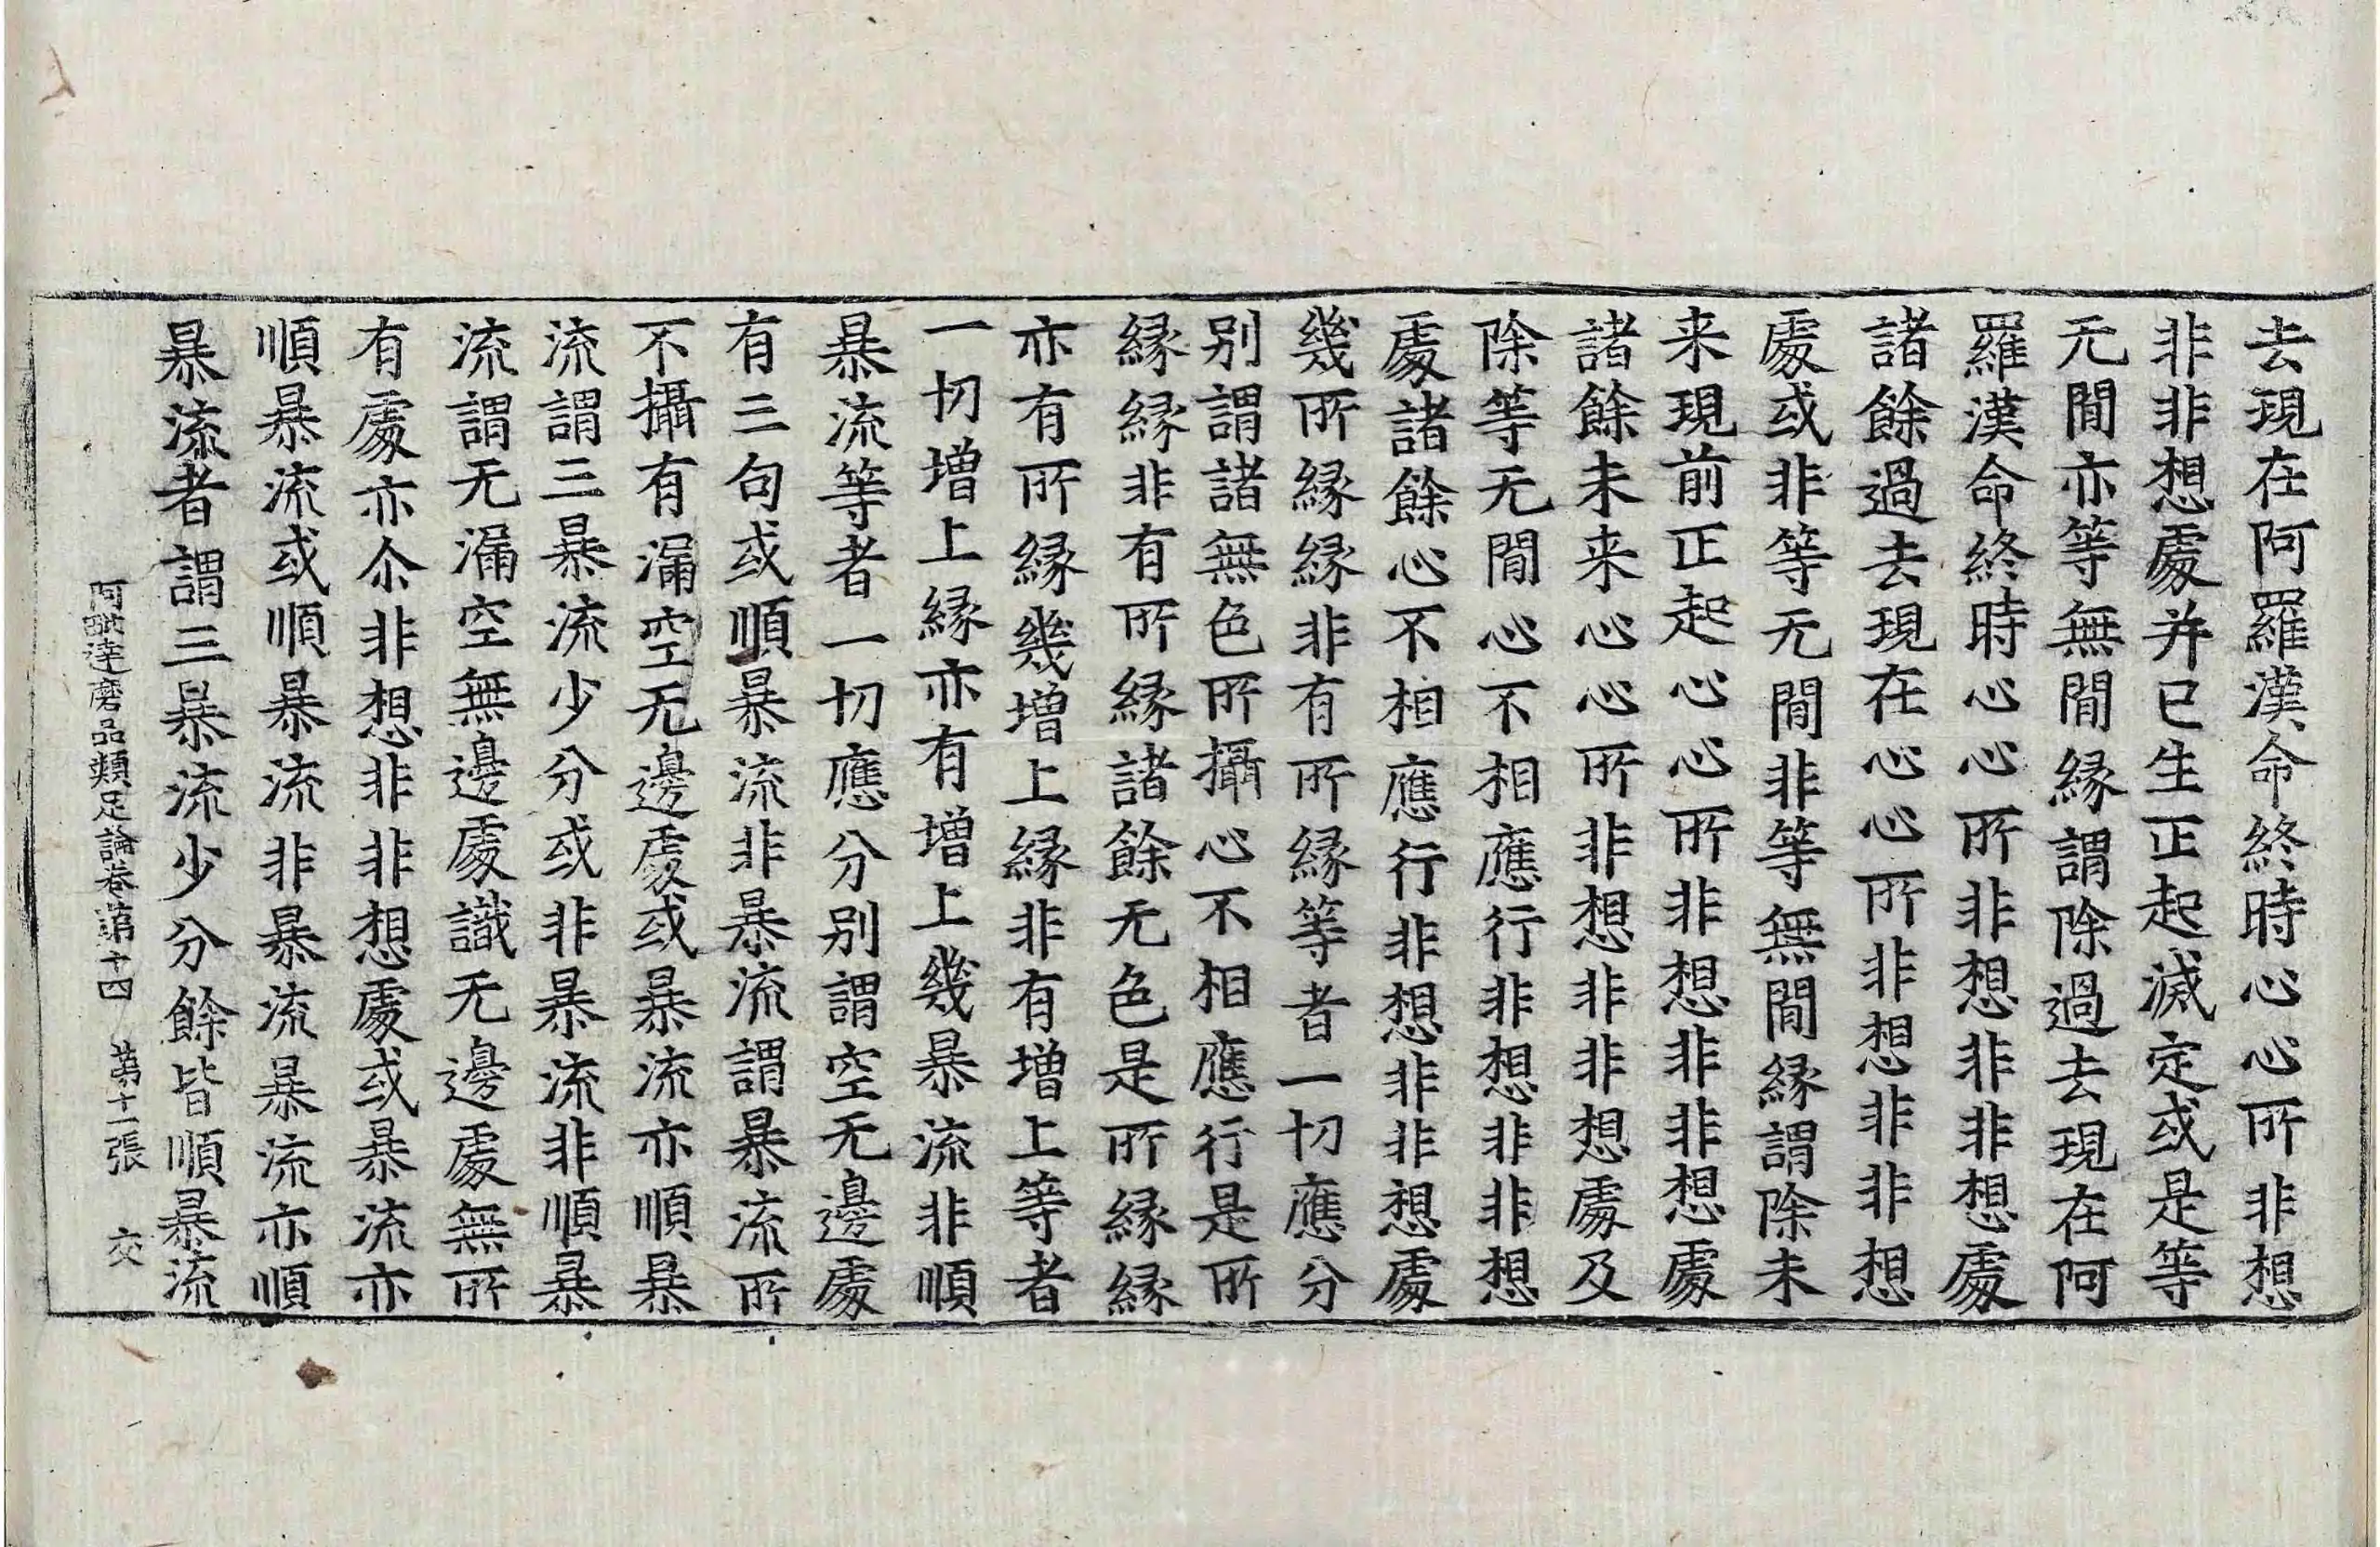 去現在阿羅漢命終時心心所非想
非非想處并已生正起滅定或是等
无閒亦等無閒縁謂除過去現在阿
羅漢命終時心心所非想非非想處
諸餘過去現在心心所非想非非想
處或非等无閒非等無閒縁謂除未
来現前正起心心所非想非非想處
諸餘未来心心所非想非非想處及
除等无閒心不相應行非想非非想
處諸餘心不相應行非想非非想處
幾所縁縁非有所縁等者一切應分
别謂諸無色所攝心不相應行是所
縁縁非有所縁諸餘无色是所縁縁
亦有所縁幾增上縁非有增上等者
一切增上縁亦有增上幾暴流非順
暴流等者一切應分别謂空无邊處
有三句或順暴流非暴流謂暴流所
不攝有漏空无邊處或暴流亦順暴
流謂三暴流少分或非暴流非順暴
流謂无漏空無邊處識无邊處無所
有處亦尒非想非非想處或暴流亦
順暴流或順暴流非暴流暴流亦順
暴流者謂三暴流少分餘皆順暴流
阿毗達磨品類足論卷第十四 第十一張 交